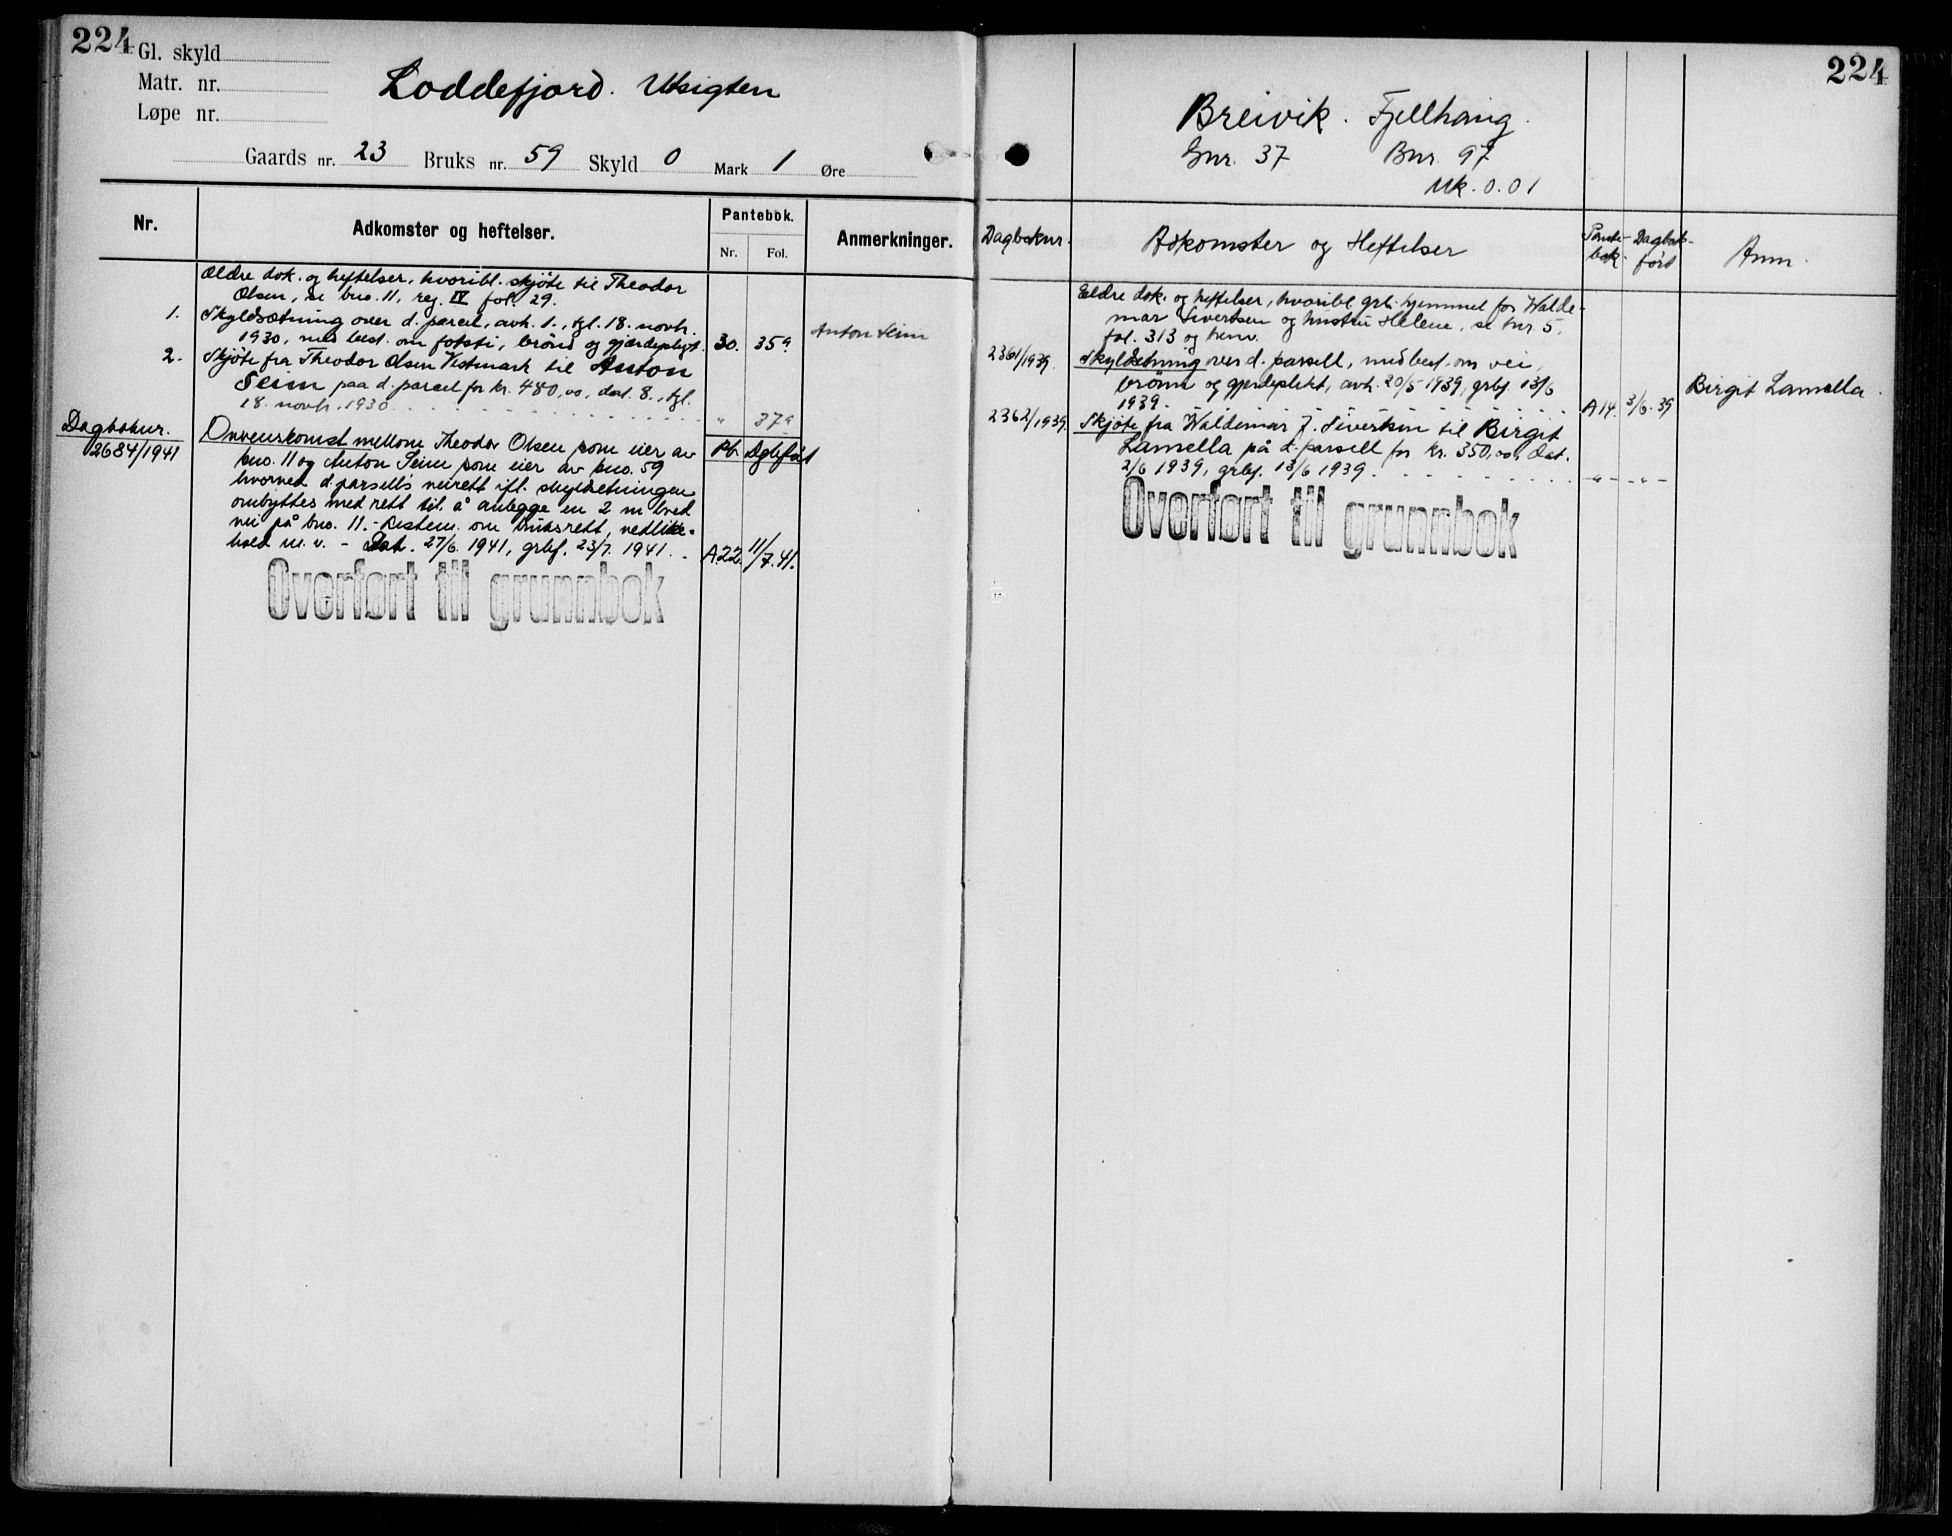 224
Gl. skyld
Matr. nr.
Løpe nr.
Loddefjord. Utsigten
Gaards nr. 23 Bruks nr. 59 Skyld 0 Mark 1 Øre
Nr.
Adkomster og heftelser.
Pantebok.
Nr. Fol.
Anmerkninger.
Ældre dok. og heftelser, hvoribl. skjöte til Theodor
Olsen, se bno. 11, reg. IV fol. 29.
1. Skyldsætning over d. parcel, avh. 1., tgl. 18. novbr.
1930, med best. om fotsti, brönd og gjærdepligt. 30. 359. Anton Seim
2. Skjöte fra Theodor Olsen Vestmark til Anton
Seim paa d. parcel for kr. 480,00, dat. 8., tgl.
18. novbr. 1930. . . . " 379
Dagboknr. Pb. Dgbf ört
2684/1941 Overenskomst mellom Theodor Olsen som eier av
bno. 11 og Anton Seim som eier av bno. 59
hvorved d. parsells veirett ifl. skyldsetningen
ombyttes med rett til å anlegge en 2 m bred
vei på bno. 11. - Bestem. om bruksrett, vedlike-
hold m. v. - Dat. 27/6. 1941, grbf. 23/7. 1941. - A.22. 11/7.41.
Overført til grunnbok
224
Breivik. Fjellhaug.
Gnr. 37 Bnr. 97
Mk. 0.01
Dagboknr.
Adkomster og Heftelser
Pante-
bok.
Dagbok-
ført
Anm.
Eldre dok. og heftelser, hvoribl. grb. hjemmel for Walde-
mar Sivertsen og hustru Helene, se bnr. 5,
fol. 313 og henv.
2361/1939. Skyldsetning over d. parsell, med best. om vei,
brönn og gjerdeplikt, avh. 20/5 1939, grbf. 13/6
1939. . . . A 14. 3/6. 39 Birgit Lamella.
2362/1939. Skjöte fra Waldemar J. Sivertsen til Birgit
Lamella på d. parsell for kr. 350,00, Dat.
2/6 1939, grbf. 13/6 1939. . . . - " - - " -
Overført til grunnbok